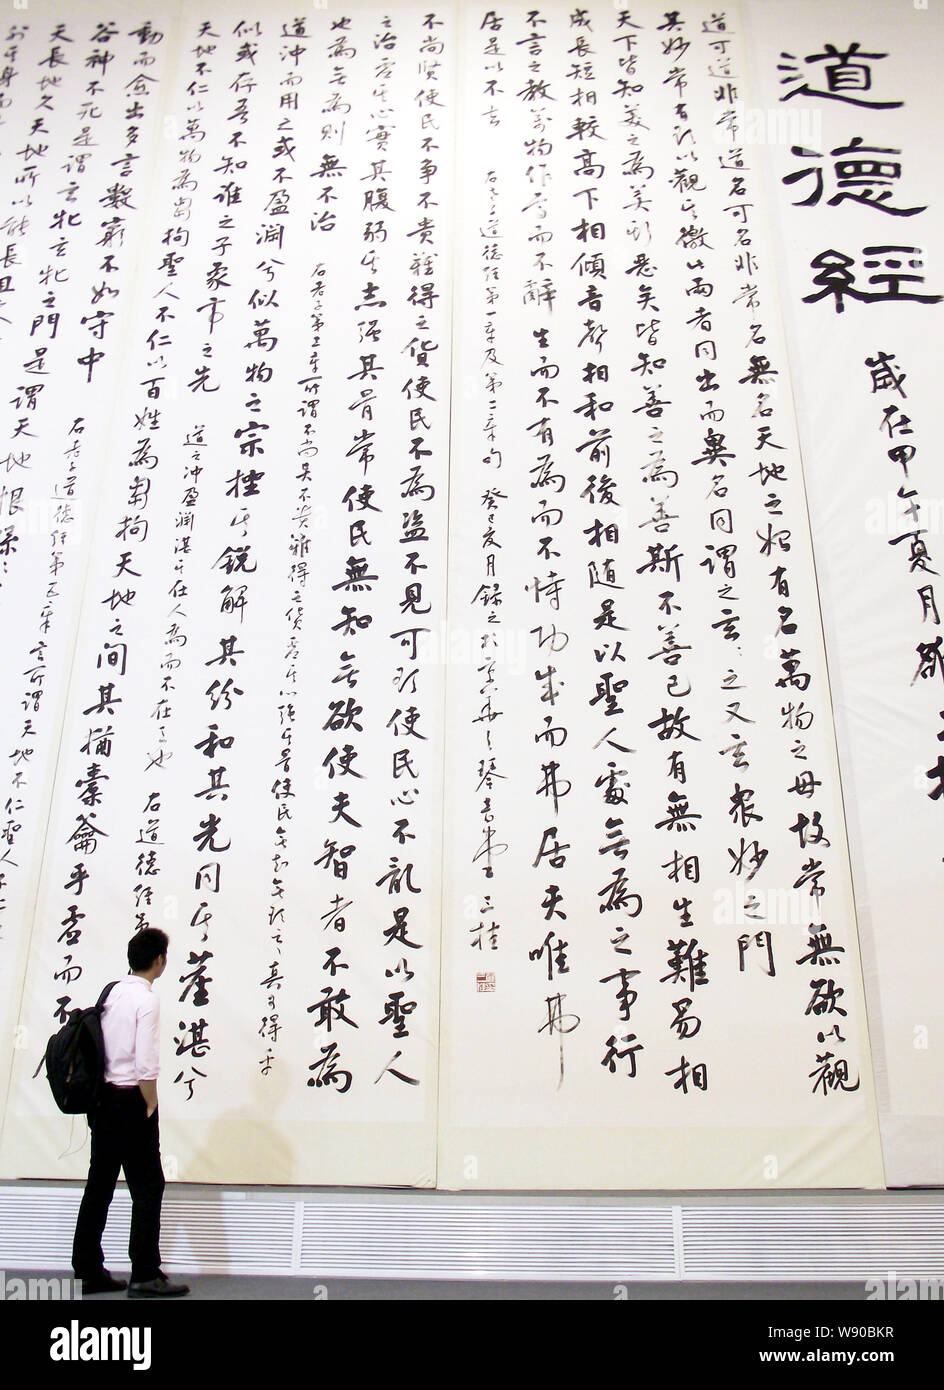 道德經
歲在甲午夏月
道可道非常道名可名非常名無名天地之始有名萬物之母故常無欲以觀
其妙常有欲以觀其徼此兩者同出而異名同謂之玄:之又玄眾妙之門
天下皆知美之為美斯惡矣皆知善之為善斯不善已故有無相生難易相
成長短相較高下相傾音聲相和前後相隨是以聖人處無為之事行
不言之教萬物作焉而不辭生而不有為而不恃功成而弗居夫唯弗
居是以不去 右老子道德經第一章及第二章句 癸巳夏月錄之於 琴 三桂
不尚賢使民不爭不貴難得之貨使民不為盜不見可欲使民心不亂是以聖人
之治虛其心實其腹弱其志強其骨常使民無知無欲使夫智者不敢為
也為無為則無不治 右老子第三章所謂不尚賢不貴難得之貨虛其心強其骨使民無知無欲 真可得乎
道沖而用之或不盈淵兮似萬物之宗挫其銳解其紛和其光同其塵湛兮
似或存吾不知誰之子象帝之先 道之沖盈淵湛 在人為而不在言也 右道德經第
天地不仁以萬物為芻狗聖人不仁以百姓為芻狗天地之間其猶橐籥乎虛而不
動而愈出多言數窮不如守中 右老子道德經第五章言所謂天地不仁聖人
谷神不死是謂玄牝玄牝之門是謂天地根綿:
天長地久天地所以能長且
alamy
Image ID: W90BKR
www.alamy.com